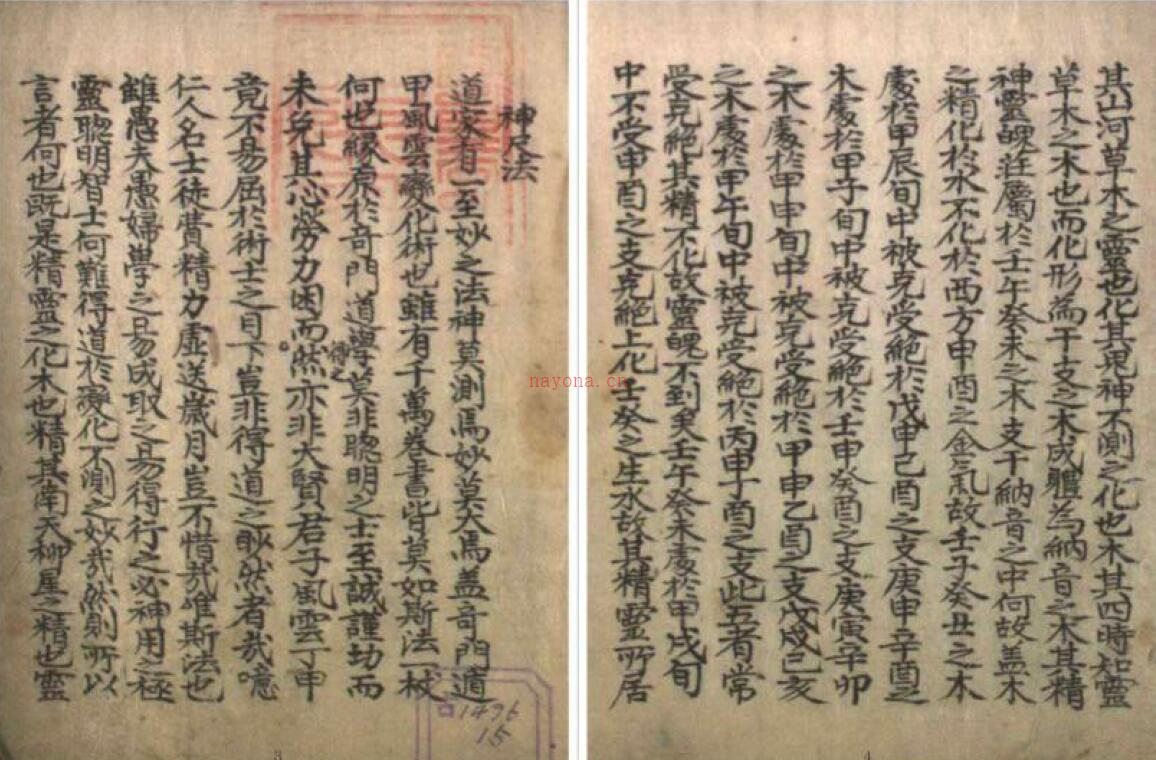 神尺法
道家有一至妙之法神莫測焉妙莫大焉盖奇門遁
甲風雲變化術也雖有千萬卷書皆莫如斯法一杖
何也緣原於奇門道學莫非聰明之士至誠謹功而
未免其心勞力困而然亦非大賢君子風雲丁甲
竟不易屈於術士之目下豈非得道之眇然者哉噫
仁人名士徒費精力虛送歲月豈不惜哉唯斯法也
雖愚夫愚婦學之易成取之易得行之必神用之極
靈聰明智士何難得道於變化不測之妙哉然則所以
言者何也既是精靈之化木也精其南天柳星之精也靈
1496
15
3
其山河草木之靈也化其鬼神不測之化也木其四時知靈
草木之木也而化形為干支之木成軆為納音之木其精
神靈魄注屬於壬午癸未木支干納音之中何故盖木
之精化於水不化於西方申酉之金氣故壬子癸丑之木
處於甲辰旬中被克受絕於戊申己酉之支庚申辛酉之
木處於甲子旬中被克受絕於壬申癸酉之支庚寅辛卯
之木處於甲申旬中被克受絕於甲申乙酉之支戊戌己亥
之木處於甲午旬中被克受絕於丙申丁酉之支此五者常
受克絕其精不化故靈魄不到矣壬午癸未處於甲戌旬
中不受申酉之支克絕上化壬癸之生水故其精靈所居
4
nayona.cn